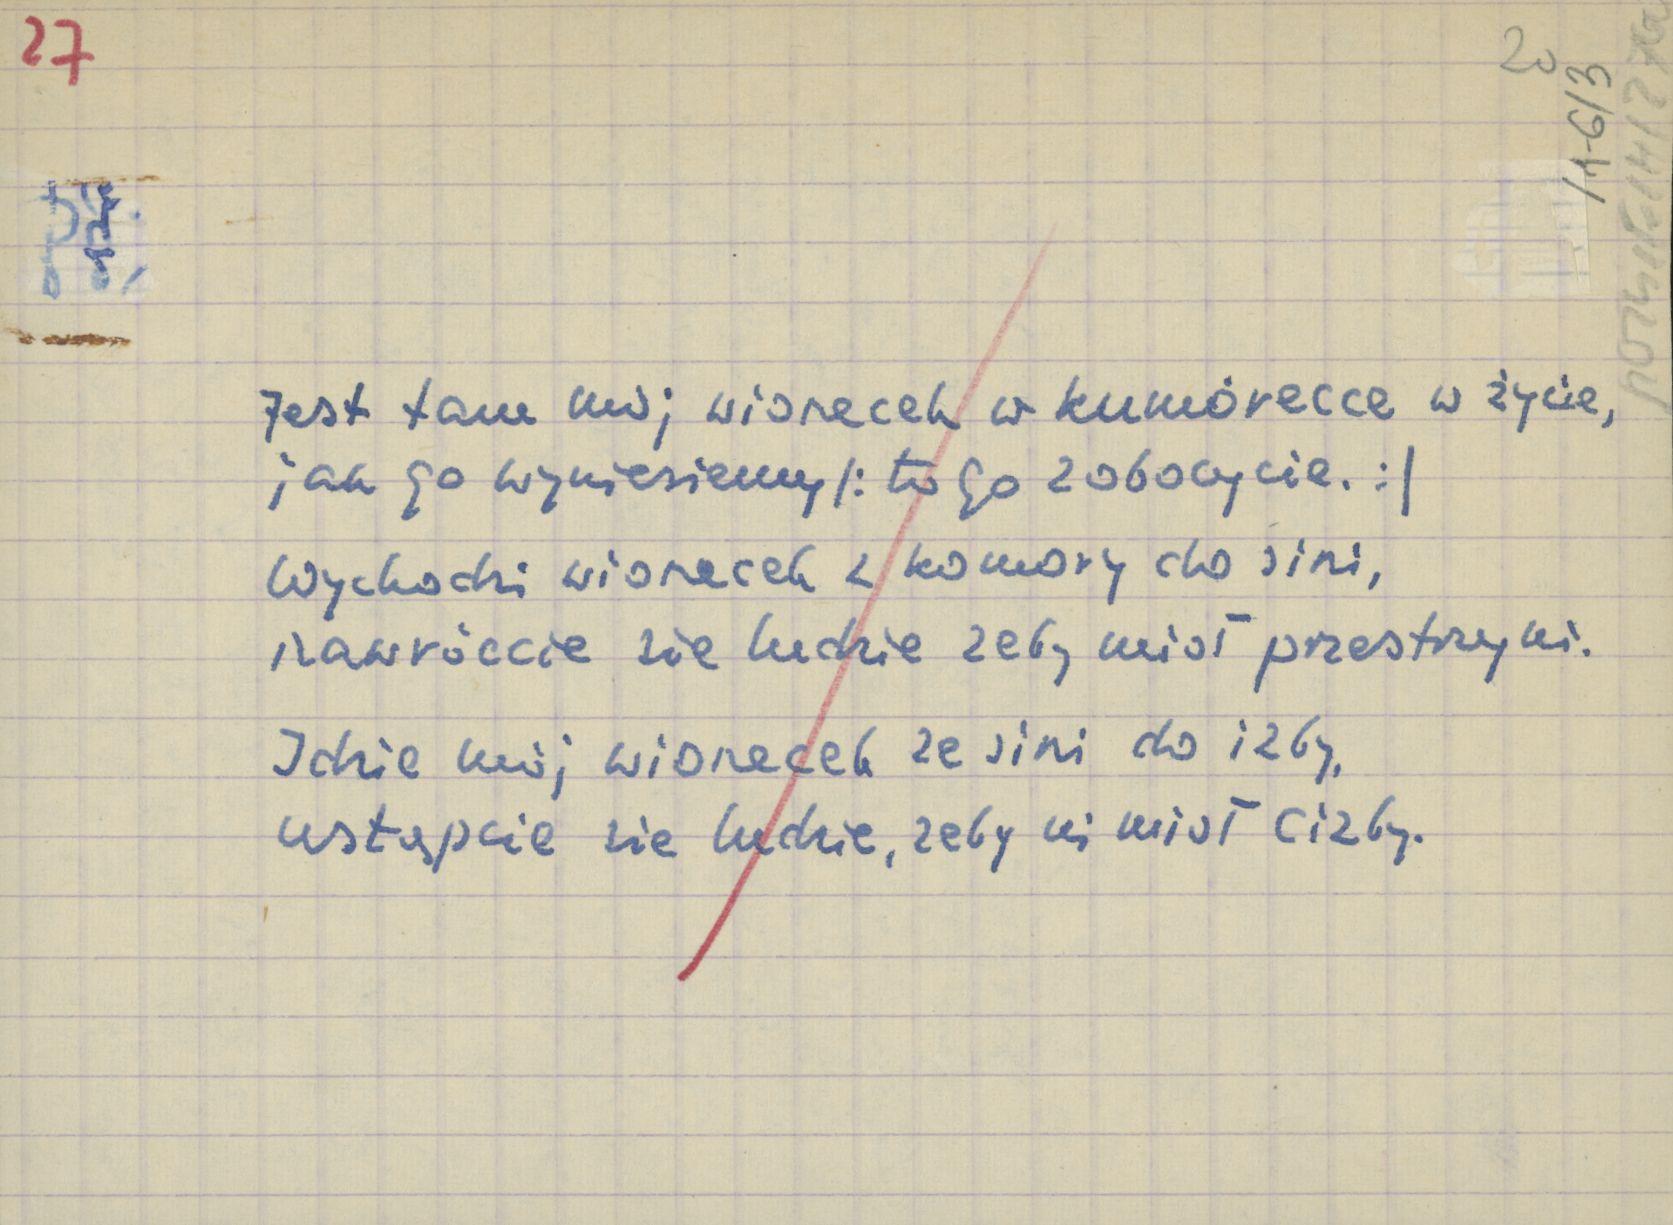 27
20
14-6/3
Jest tam mój wionecek w kumórecce w życie,
jak go wyniesiemy /: to go zobocycie. :/
Wychodzi wionecek z komory do sini,
nawróccie sie ludzie zeby mioł przestrzyni.
Idzie mój wionecek ze sini do izby,
ustąpcie sie ludzie, zeby ni mioł cizby.